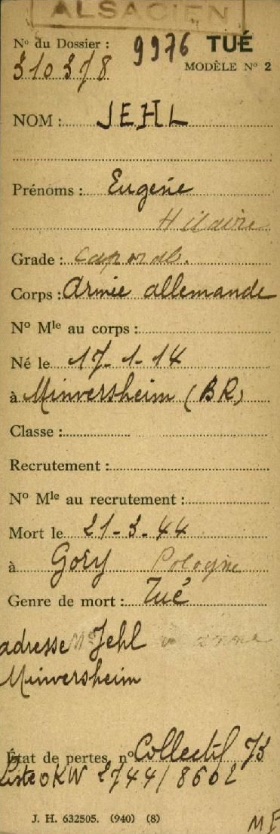 ALSACIEN
N° du Dossier : 9976 TUÉ
310378 MODÈLE N° 2
NOM : JEHL
Prénoms : Eugène
Hilaire
Grade : caporal.
Corps : Armée allemande
N° Mle au corps :
Né le 17-1-14
à Minversheim (BR)
Classe :
Recrutement :
N° Mle au recrutement :
Mort le 21-3-44
à Gory Pologne
Genre de mort : Tué
adresse Jehl
Minversheim
État de pertes n° Collectif 73
Liste OKW 2744/8662
J. H. 632505. (940) (8)